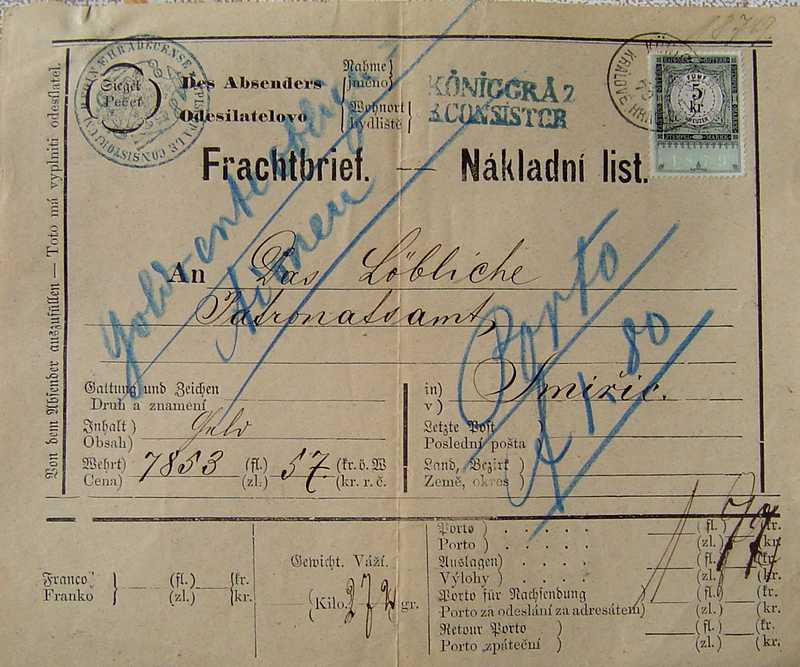 Siegel
Pečet
Des Absenders
Odesílatelovo
Nahme
jméno
Wohnort
bydliště
KÖNIGGRÄZ
B. CONSISTOR
FÜNF
5
Kr.
1879
Frachtbrief. — Nákladní list.
An Das Löbliche
Patronatsamt
Porto
f 1.80
Gattung und Zeichen
Druh a znamení
in)
v)
Smiřic.
Inhalt)
Obsah)
Geld
Letzte Post
Poslední pošta
Wehrt)
Cena)
7853 (fl.) (zl.) 57. (kr. ö. W
(kr. r. č.
Land, Bezirk
Země, okres
Von dem Absender auszufüllen — Toto má vyplniti odesílatel.
Franco
Franko
(fl.)
(zl.)
(kr.
(kr.
Gewicht. Váží.
(Kilo. 272 gr.
Porto) . . . . . (fl.) (kr.
Porto) . . . . . (zl.) (kr.
Auslagen) (fl.) (kr.
Výlohy) . . . . (zl.) (kr.
Porto für Nachsendung (fl.) (kr.
Porto za odeslání za adresátem) (zl.) (kr.
Retour Porto (fl.) (kr.
Porto zpáteční) (zl.) (kr.